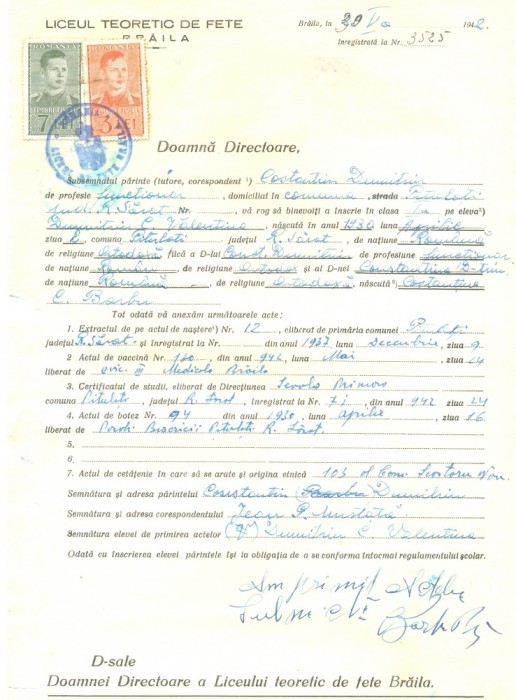 LICEUL TEORETIC DE FETE
BRĂILA
Brăila, în 29 1942.
înregistrată la Nr. 3525
ROMANIA ROMANIA
7 LEI 3 LEI
Doamnă Directoare,
Subsemnatul părinte (tutore, corespondent ¹) Costantin Dumitriu
de profesie funcționar, domiciliat în comuna, strada Pitulati
jud. R. Sărat Nr. , vă rog să binevoiți a înscrie în clasa I-a pe eleva²)
Dumitriu C. Valentina, născută în anul 1930 luna Aprilie
ziua 2, comuna Pitulati județul R. Sărat, de națiune Română
de religiune Ortodoxă fiică a D-lui Const. Dumitriu de profesiune funcționar,
de națiune Român, de religiune Ortodox și al D-nei Constantina D-triu
de națiune Română, de religiune Ortodoxă, născută³) Costantina
C. Barbu
Tot odată vă anexăm următoarele acte:
1. Extractul de pe actul de naștere¹) Nr. 12, eliberat de primăria comunei
R. Sărat și înregistrat la Nr. , din anul 1937 luna Decembrie, ziua 9
2 Actul de vaccină Nr. 180, din anul 942, luna Mai, ziua 24
liberat de Medicală Brăila
3. Certificatul de studii, eliberat de Direcțiunea Școala Primară
comuna Pitulati, județul R. Sărat, înregistrat la Nr. 71 din anul 942 ziua 24
4. Actul de botez Nr. 94 din anul 1930, luna Aprilie, ziua 16
liberat de Bisericii Pitulati R. Sărat
5.
6.
7. Actul de cetățenie în care să se arate și origina etnică 103 al Com.
Semnătura și adresa părintelui Constantin Dumitriu
Semnătura și adresa corespondentului Jean P.
Semnătura elevei de primirea actelor Dumitriu C. Valentina
Odată cu înscrierea elevei părintele își ia obligația de a se conforma întocmai regulamentului școlar.
Am primit
D-sale
Doamnei Directoare a Liceului teoretic de fete Brăila.